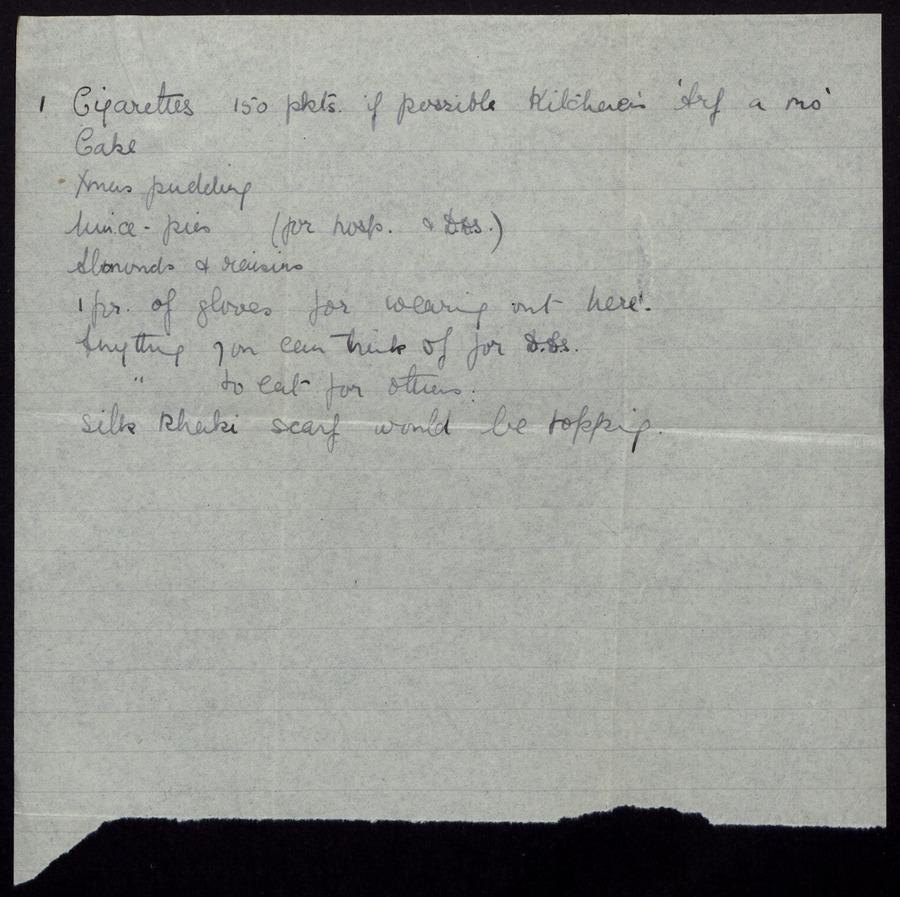 1 Cigarettes 150 pkts. if possible Kitchener's 'Arf a mo'
Cake
Xmas pudding
Mince-pies (for hosp. & D.Ss.)
Almonds & raisins
1 pr. of gloves for wearing out here.
Anything you can think of for D.Ss.
" to eat for others.
Silk Khaki scarf would be topping.